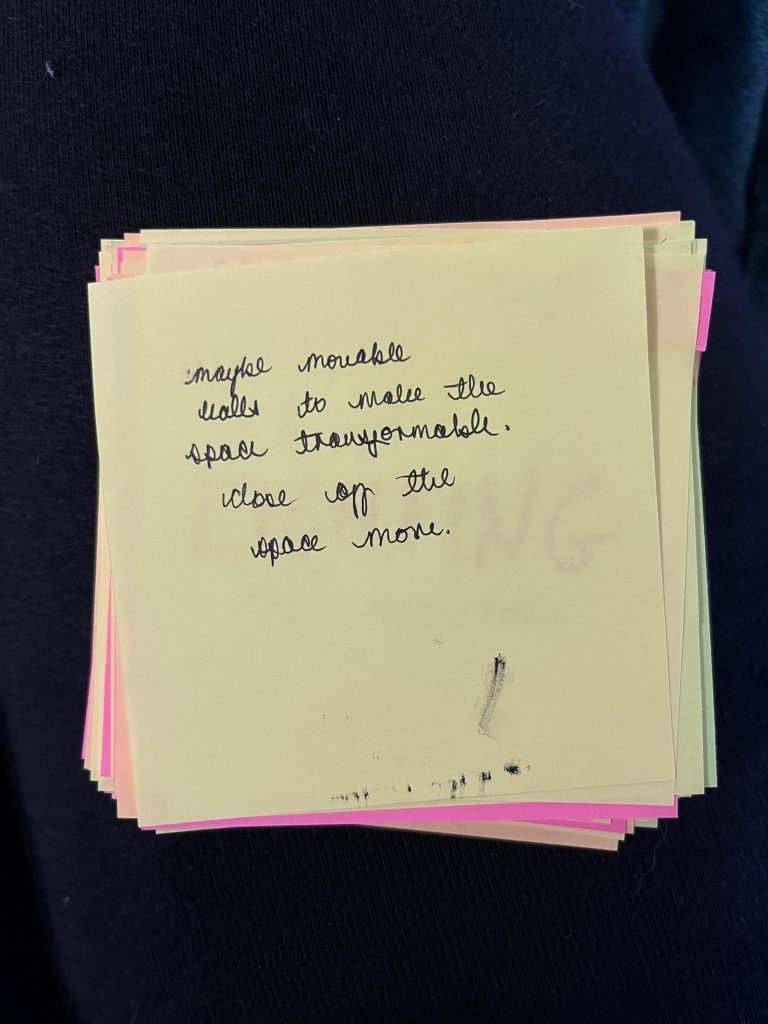 maybe movable
walls to make the
space transformable.
close off the
space more.